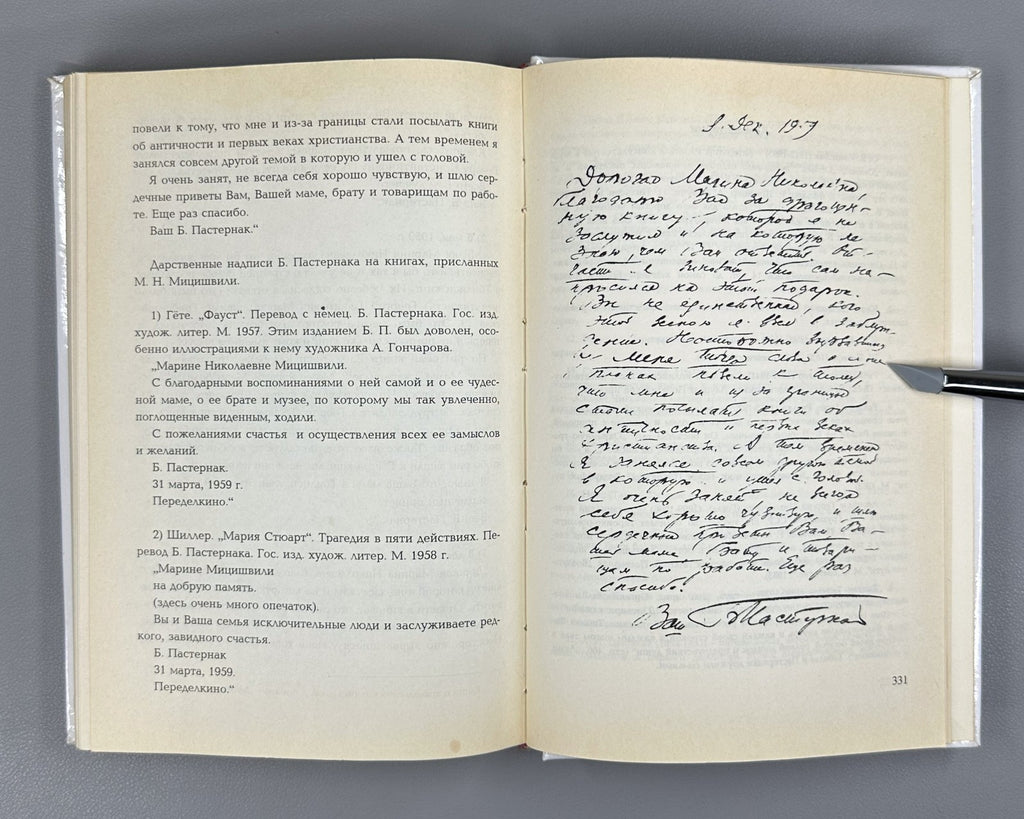 повели к тому, что мне и из-за границы стали посылать книги
об античности и первых веках христианства. А тем временем я
занялся совсем другой темой в которую и ушел с головой.
Я очень занят, не всегда себя хорошо чувствую, и шлю сер-
дечные приветы Вам, Вашей маме, брату и товарищам по рабо-
те. Еще раз спасибо.
Ваш Б. Пастернак.“
Дарственные надписи Б. Пастернака на книгах, присланных
М. Н. Мицишвили.
1) Гёте. „Фауст“. Перевод с немец. Б. Пастернака. Гос. изд.
худож. литер. М. 1957. Этим изданием Б. П. был доволен, осо-
бенно иллюстрациями к нему художника А. Гончарова.
„Марине Николаевне Мицишвили.
С благодарными воспоминаниями о ней самой и о ее чудес-
ной маме, о ее брате и музее, по которому мы так увлеченно,
поглощенные виденным, ходили.
С пожеланиями счастья и осуществления всех ее замыслов
и желаний.
Б. Пастернак.
31 марта, 1959 г.
Переделкино.“
2) Шиллер. „Мария Стюарт“. Трагедия в пяти действиях. Пе-
ревод Б. Пастернака. Гос. изд. худож. литер. М. 1958 г.
„Марине Мицишвили
на добрую память.
(здесь очень много опечаток).
Вы и Ваша семья исключительные люди и заслуживаете ред-
кого, завидного счастья.
Б. Пастернак
31 марта, 1959.
Переделкино.“
Дек.
Дорогая Марина Николаевна,
благодарю Вас за драгоцен-
ную книгу, которой я не
заслужил и на которую не
знаю, чем Вам ответить.
я виноват, что сам на-
просился на этот подарок.
Вы не единственная, кого
этой весною я ввел в заблуж-
дение.
и меня
повели к тому,
что мне и из-за границы
стали посылать книги об
античности и первых веках
христианства. А тем временем
я занялся совсем другой темой
в которую и ушел с головой.
Я очень занят, не всегда
себя хорошо чувствую, и шлю
сердечные приветы Вам, Ва-
шей маме, брату и товари-
щам по работе. Еще раз
спасибо.
Ваш Б Пастернак
331